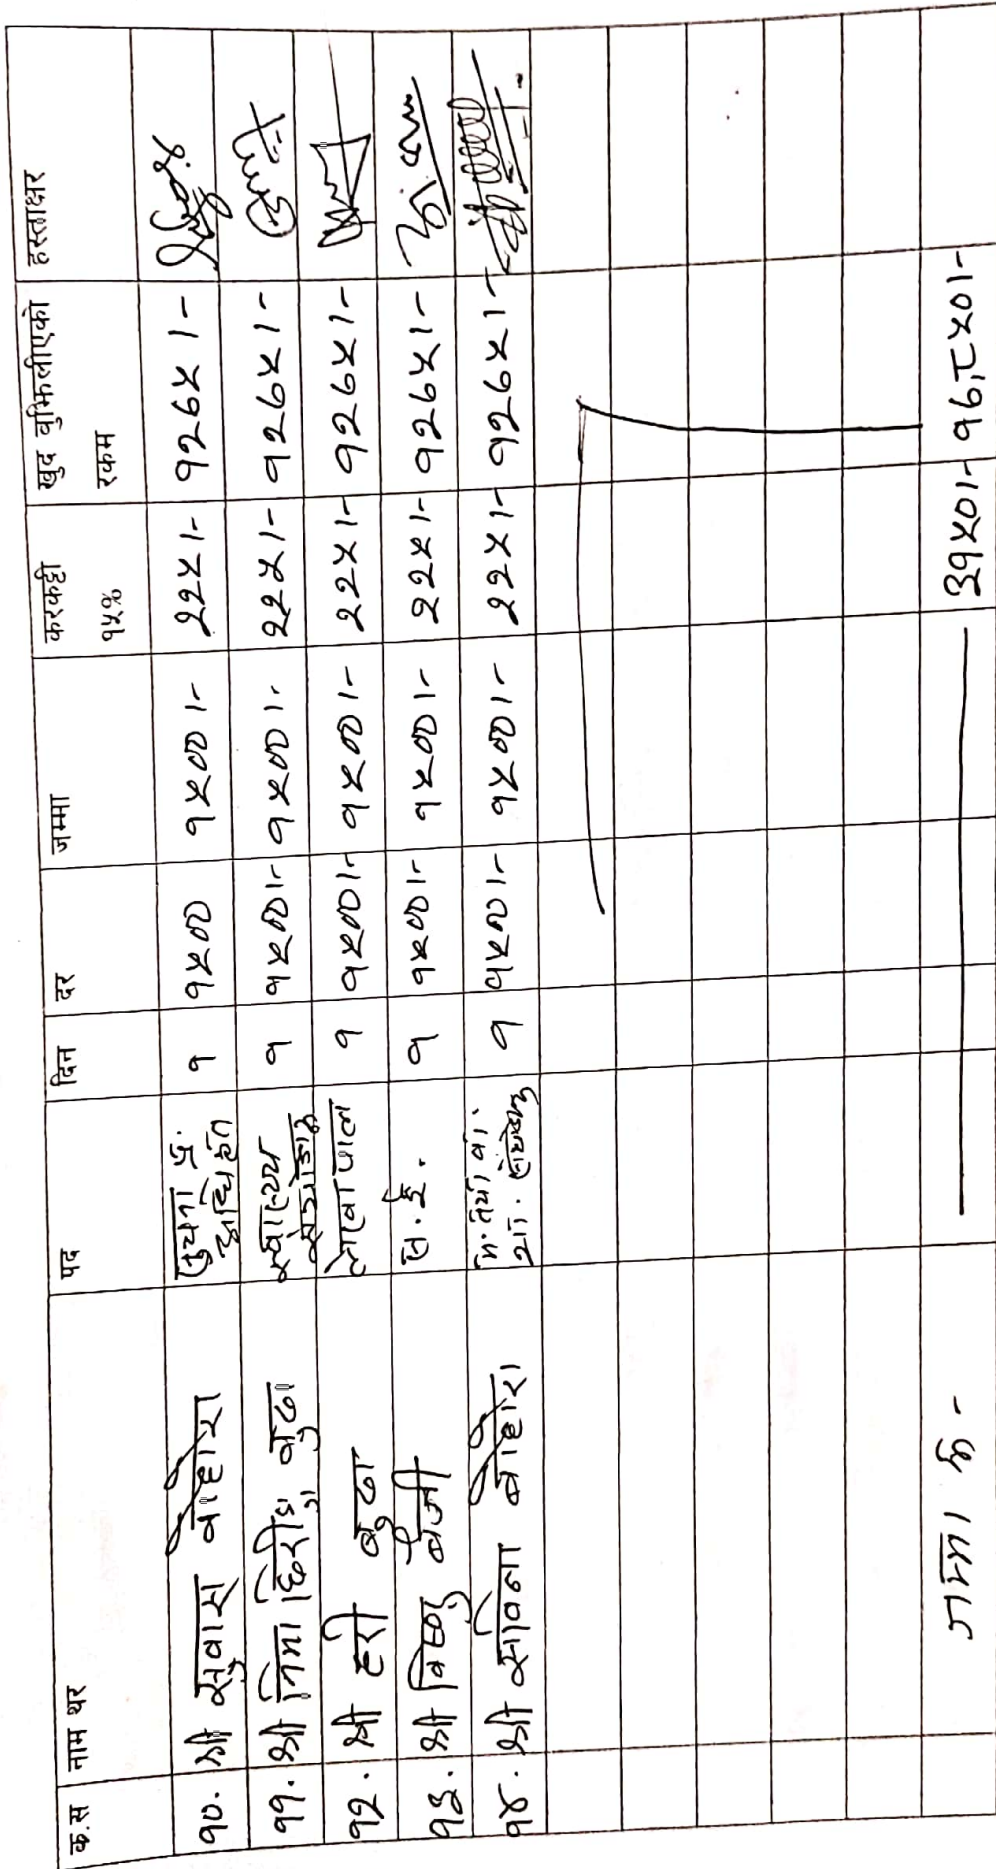 क.स नाम थर पद दिन दर जम्मा करकट्टी १५% खुद बुझिलीएको रकम हस्ताक्षर
१०. श्री सुवास बोहोरा सुचना प्र. अधिकृत १ १५०० १५००।- २२५।- १२७५।-
११. श्री निमा छिरीङ्ग बुढा स्वास्थ्य संयोजक १ १५००।- १५००।- २२५।- १२७५।-
१२. श्री हरी बुढा लेखापाल १ १५००।- १५००।- २२५।- १२७५।-
१३. श्री विष्णु बोगी स.ई. १ १५००।- १५००।- २२५।- १२७५।-
१४. श्री सविना बोहोरा १ १५००।- १५००।- २२५।- १२७५।-
जम्मा रु - ३१५०।- १७,८५०।-